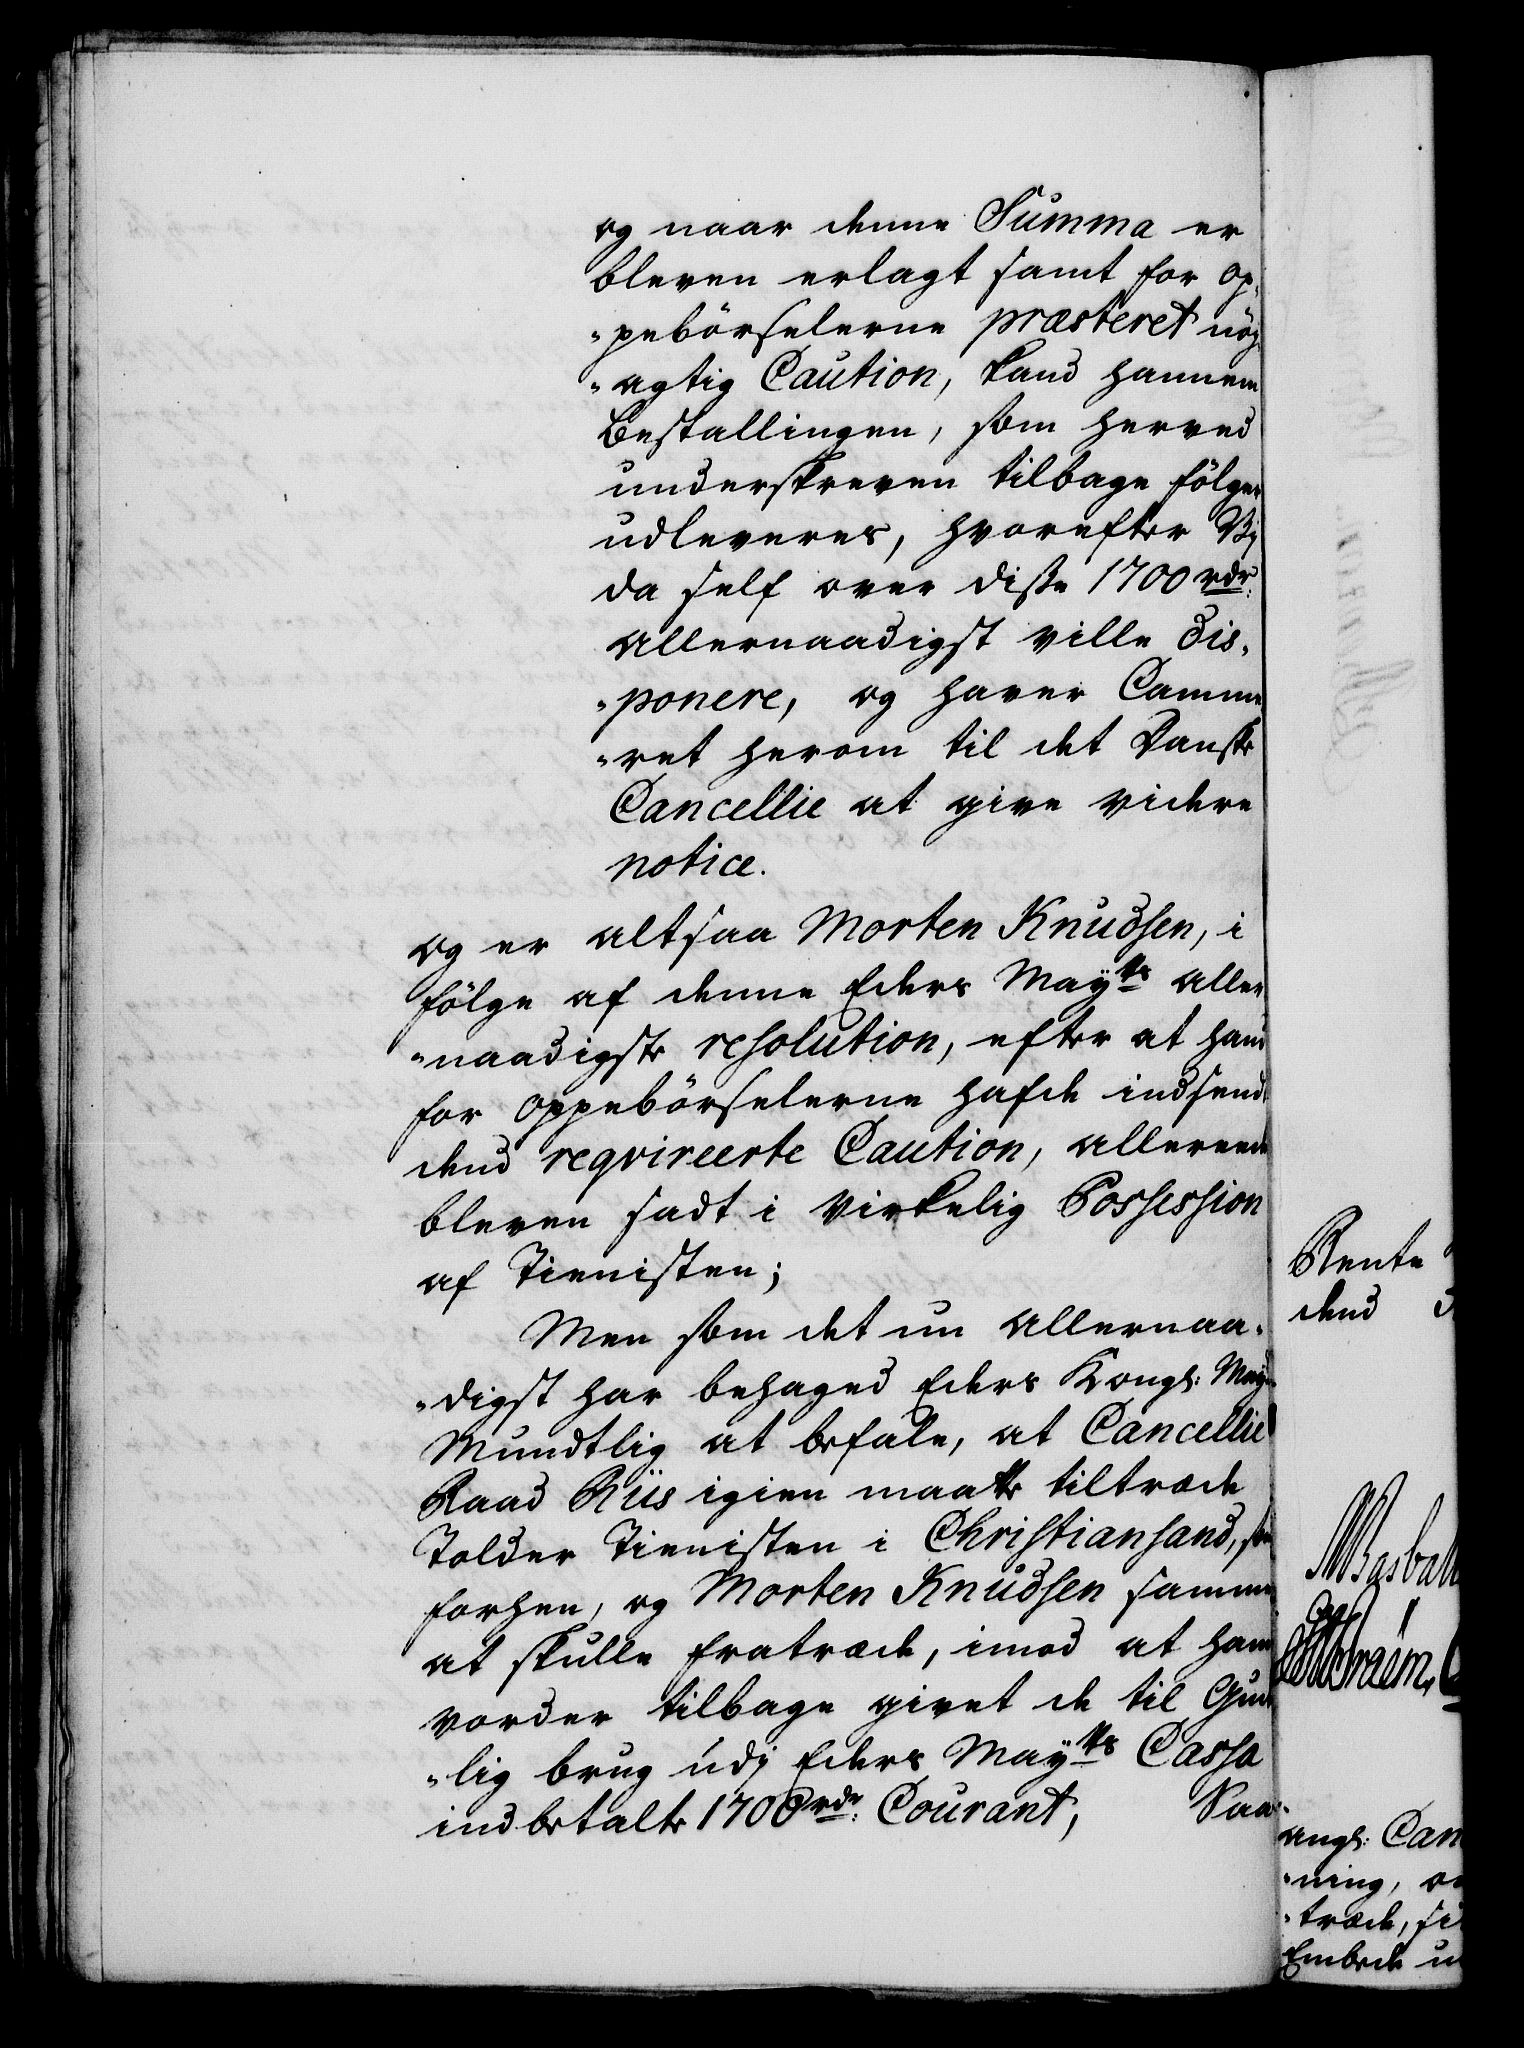 og naar denne Summa er
bleven erlagt samt for op„
„pebörselerne præsteret nöy
„agtig Caution, kand hannem
Bestallingen, som herved
underskreven tilbage fölger
udleveres, hvorefter Vi
da self over disse 1700 rdr:
allernaadigst ville dis„
„ponere, og haver Camme
„ret herom til det Danske
Cancellie at give videre
notice.
og er altsaa Morten Knudsen, i
fölge af denne Eders Mayts aller
„naadigste resolution, efter at hand
for oppebörselerne hafde indsendt
dend reqvireerte Caution, allereede
bleven sadt i virkelig Possession
af Tienisten;
Men som det nu allernaa„
„digst har behaged Eders Kongl: May
Mundtlig at befale, at Cancellie
Raad Riis igien maatte tiltræde
Tolder Tienisten i Christiansand, som
forhen, og Morten Knudsen samme
at skulle fratræde, imod at ham
vorder tilbage givet de til Gud
„lig brug udj Eders Mayts Cassa
indbetalte 1700 rdr: Courant, Saa
Rente
dend
angl: Can
„ning, o
„træde, si
Embede u